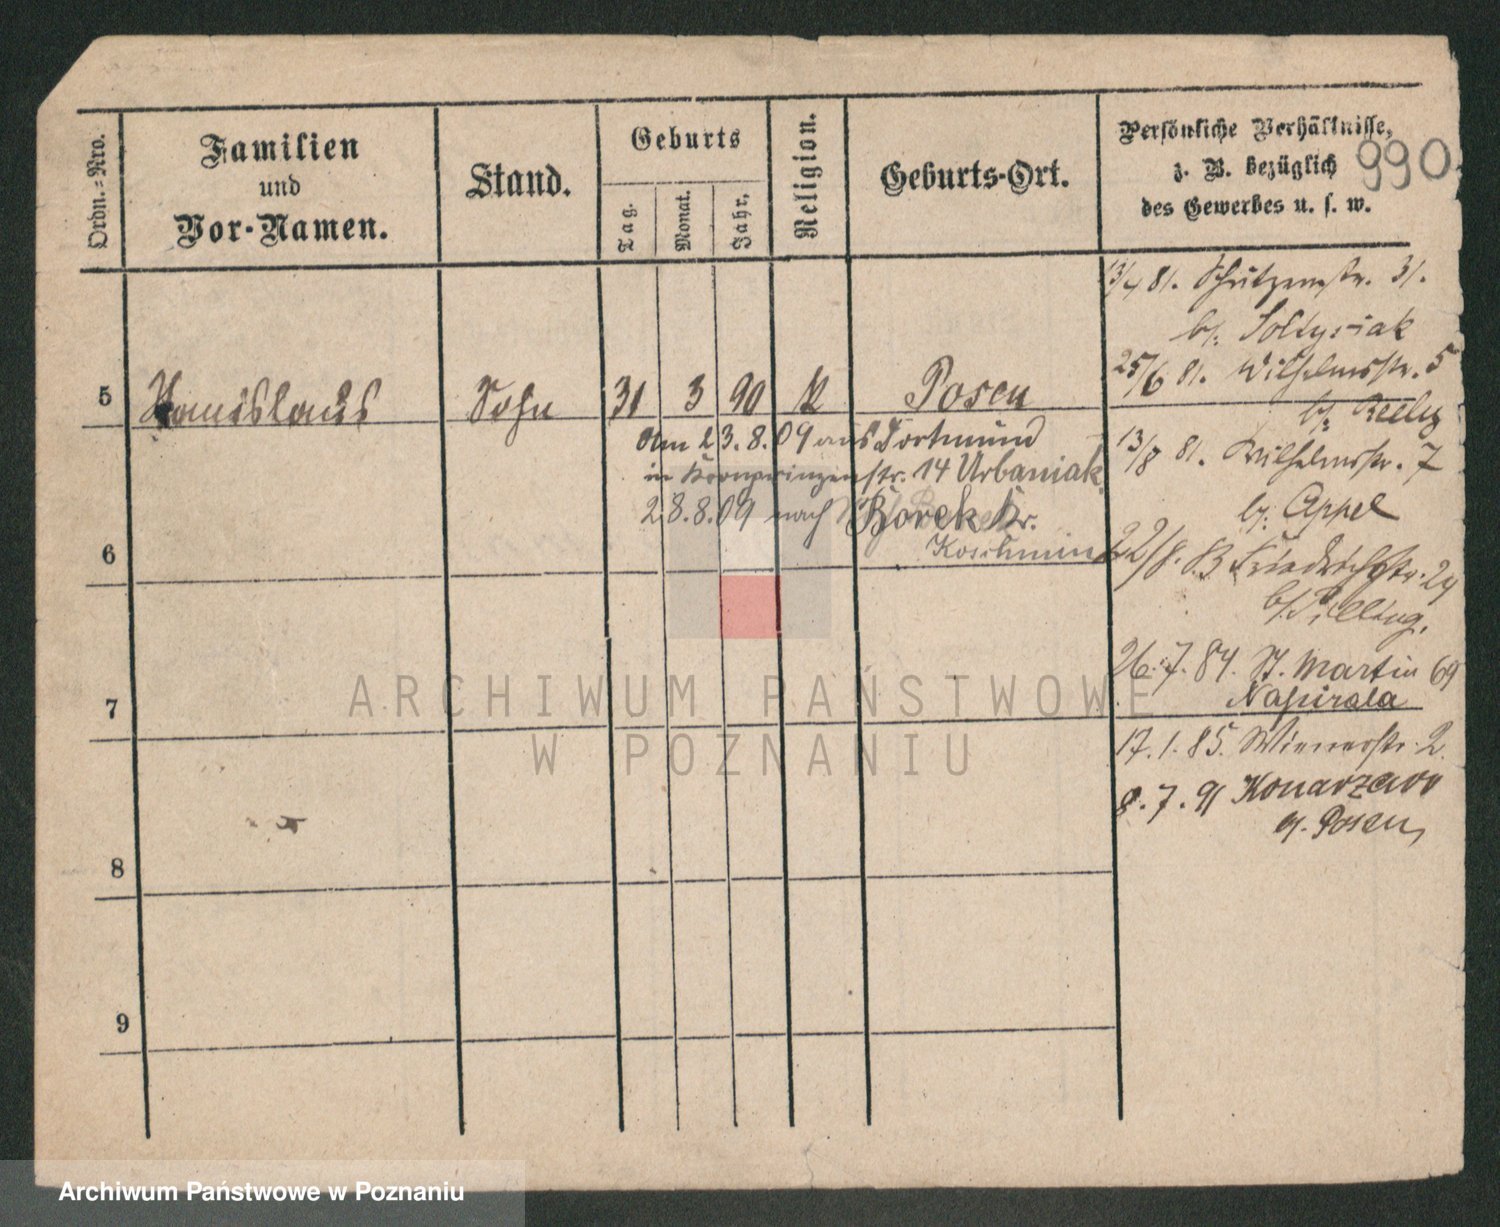 Ordn.=Nro.
Familien
und
Vor-Namen.
Stand.
Geburts
Tag.
Monat.
Jahr.
Religion.
Geburts-Ort.
Persönliche Verhältnisse,
z. B. bezüglich
des Gewerbes u. s. w.
990
13/4 81. Schützenstr. 31.
b/. Soltysiak
25/6 81. Wilhelmsstr. 5
b/.
5 Stanislaus Sohn 31 3 90 k Posen
Am 23.8.09 aus Dortmund
in Kronprinzenstr. 14 Urbaniak
28.8.09 nach Borek Kr.
Koschmin
13/8 81. Wilhelmsstr. 7
b/. Appel
22/8. 83 Friedrichstr. 24
26.7.84. St. Martin 69
Napirala
17.1.85. Wienerstr. 2
8.7.91 Konarzewo
Posen
6
7
8
9
ARCHIWUM PAŃSTWOWE
W POZNANIU
Archiwum Państwowe w Poznaniu